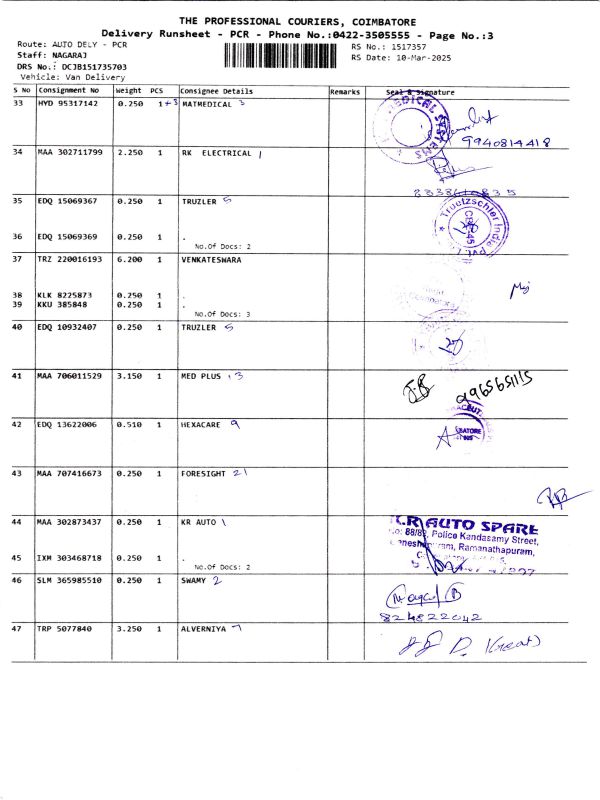 THE PROFESSIONAL COURIERS, COIMBATORE
Delivery Runsheet - PCR - Phone No.:0422-3505555 - Page No.:3
Route: AUTO DELY - PCR
RS No.: 1517357
Staff: NAGARAJ
RS Date: 10-Mar-2025
DRS No.: DCJB151735703
Vehicle: Van Delivery
S No Consignment No Weight PCS Consignee Details Remarks Seal & Signature
33 HYD 95317142 0.250 1+3 MATMEDICAL 3
MEDICAL SYSTEMS
9940814418
34 MAA 302711799 2.250 1 RK ELECTRICAL 1
35 EDQ 15069367 0.250 1 TRUZLER 5
Truetzschler India Pvt.
36 EDQ 15069369 0.250 1 .
No.Of Docs: 2
37 TRZ 220016193 6.200 1 VENKATESWARA
38 KLK 8225873 0.250 1 .
39 KKU 385848 0.250 1 .
No.Of Docs: 3
40 EDQ 10932407 0.250 1 TRUZLER 5
41 MAA 706011529 3.150 1 MED PLUS 3
42 EDQ 13622006 0.510 1 HEXACARE 9
43 MAA 707416673 0.250 1 FORESIGHT 21
44 MAA 302873437 0.250 1 KR AUTO 1
K.R AUTO SPARE
No: 88/89, Police Kandasamy Street,
Ramanathapuram,
45 IXM 303468718 0.250 1 .
No.Of Docs: 2
46 SLM 365985510 0.250 1 SWAMY 2
8248822042
47 TRP 5077840 3.250 1 ALVERNIYA 7